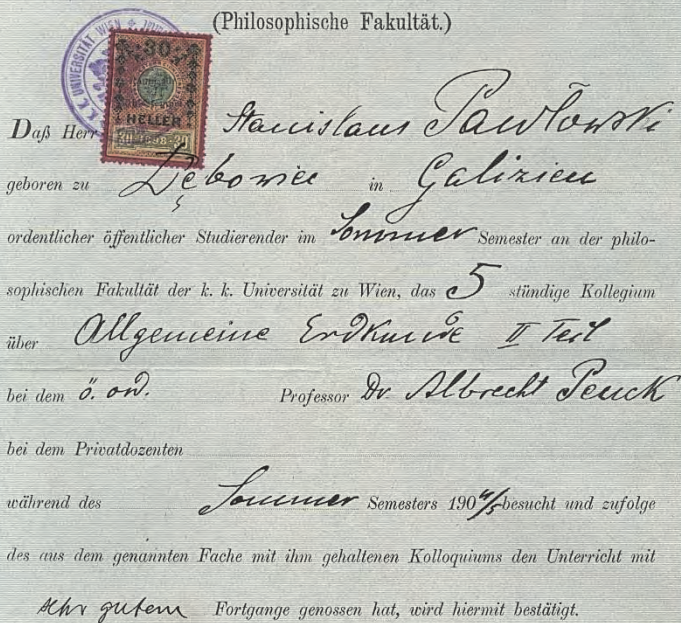 (Philosophische Fakultät.)
K. K. UNIVERSITÄT WIEN
30
HELLER
1898
Daß Herr Stanislaus Pawłowski
geboren zu Dębowiec in Galizien
ordentlicher öffentlicher Studierender im Sommer Semester an der philo-
sophischen Fakultät der k. k. Universität zu Wien, das 5 stündige Kollegium
über Allgemeine Erdkunde II Teil
bei dem ö. ord. Professor Dr Albrecht Penck
bei dem Privatdozenten
während des Sommer Semesters 1904/5 besucht und zufolge
des aus dem genannten Fache mit ihm gehaltenen Kolloquiums den Unterricht mit
sehr gutem Fortgange genossen hat, wird hiermit bestätigt.